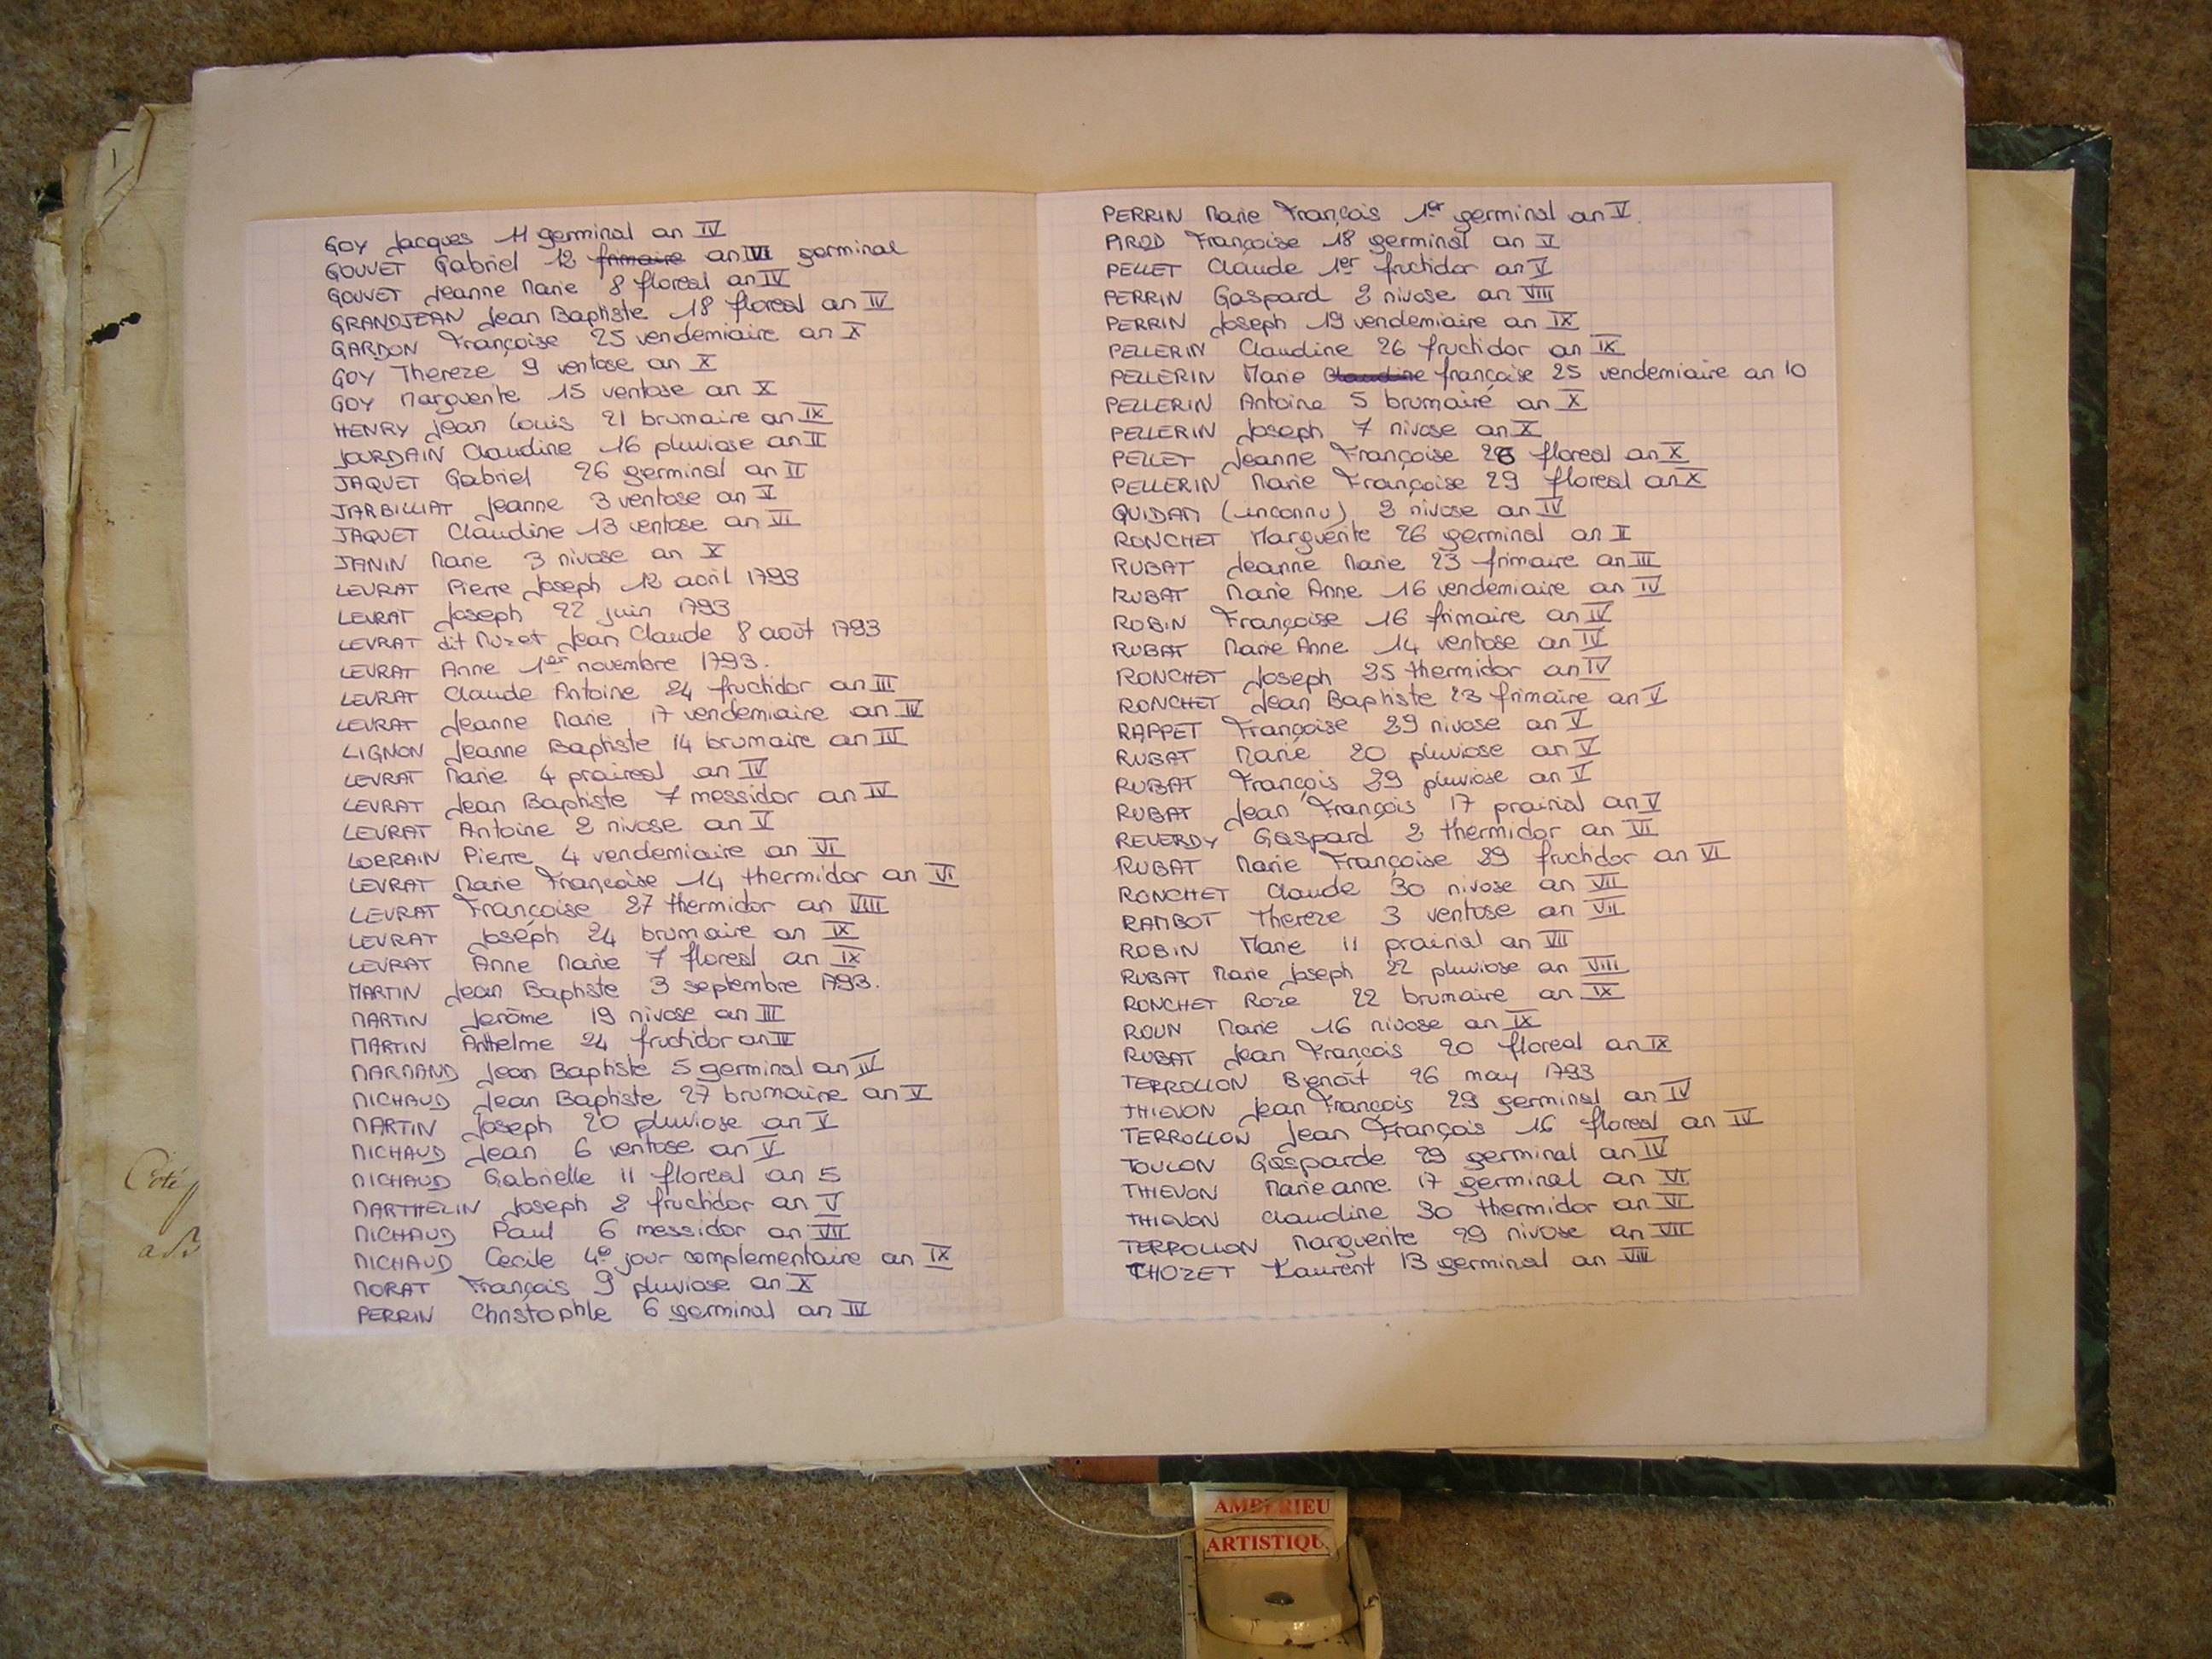 GOY Jacques 11 germinal an IV
GOUVET Gabriel 12 frimaire an VI germinal
GOUVET Jeanne Marie 8 floreal an IV
GRANDJEAN Jean Baptiste 18 floreal an IV
GARDON Françoise 25 vendemiaire an X
GOY Thereze 9 ventose an X
GOY Marguerite 15 ventose an X
HENRY Jean Louis 21 brumaire an IX
JOURDAIN Claudine 16 pluviose an II
JAQUET Gabriel 26 germinal an II
JARBILLIAT Jeanne 3 ventose an V
JAQUET Claudine 13 ventose an VI
JANIN Marie 3 nivose an X
LEVRAT Pierre Joseph 12 avril 1793
LEVRAT Joseph 22 juin 1793
LEVRAT dit Muzet Jean Claude 8 août 1793
LEVRAT Anne 1er novembre 1793.
LEVRAT Claude Antoine 24 fructidor an III
LEVRAT Jeanne Marie 17 vendemiaire an IV
LIGNON Jeanne Baptiste 14 brumaire an III
LEVRAT Marie 4 praireal an IV
LEVRAT Jean Baptiste 7 messidor an IV
LEVRAT Antoine 2 nivose an V
LORRAIN Pierre 4 vendemiaire an VI
LEVRAT Marie Françoise 14 thermidor an VI
LEVRAT Françoise 27 thermidor an VIII
LEVRAT Joseph 24 brumaire an IX
LEVRAT Anne Marie 7 floreal an IX
MARTIN Jean Baptiste 3 septembre 1793.
MARTIN Jerôme 19 nivose an III
MARTIN Anthelme 24 fructidor an
MARMAND Jean Baptiste 5 germinal an IV
MICHAUD Jean Baptiste 27 brumaire an V
MARTIN Joseph 20 pluviose an V
MICHAUD Jean 6 ventose an V
MICHAUD Gabrielle 11 floreal an 5
MARTHELIN Joseph 2 fructidor an V
MICHAUD Paul 6 messidor an VII
MICHAUD Cecile 4e jour complementaire an IX
MORAT François 9 pluviose an X
PERRIN Christophle 6 germinal an III
PERRIN Marie François 1er germinal an V.
PIROD Françoise 18 germinal an V
PELLET Claude 1er fructidor an V
PERRIN Gaspard 2 nivose an VIII
PERRIN Joseph 19 vendemiaire an IX
PELLERIN Claudine 26 fructidor an IX
PELLERIN Marie Claudine françoise 25 vendemiaire an 10
PELLERIN Antoine 5 brumaire an X
PELLERIN Joseph 7 nivose an X
PELLET Jeanne Françoise 26 floreal an X
PELLERIN Marie Françoise 29 floreal an X
QUIDAM (inconnu) 2 nivose an IV
RONCHET Marguerite 26 germinal an II
RUBAT Jeanne Marie 23 frimaire an III
RUBAT Marie Anne 16 vendemiaire an IV
ROBIN Françoise 16 frimaire an IV
RUBAT Marie Anne 14 ventose an IV
RONCHET Joseph 25 thermidor an IV
RONCHET Jean Baptiste 23 frimaire an V
RAPPET Françoise 29 nivose an V
RUBAT Marie 20 pluviose an V
RUBAT François 29 pluviose an V
RUBAT Jean François 17 prairial an V
REVERDY Gaspard 2 thermidor an VI
RUBAT Marie Françoise 29 fructidor an VI
RONCHET Claude 30 nivose an VII
RAMBOT Thereze 3 ventose an VII
ROBIN Marie 11 prairial an VII
RUBAT Marie Joseph 22 pluviose an VIII
RONCHET Roze 22 brumaire an IX
ROUN Marie 16 nivose an IX
RUBAT Jean François 20 floreal an IX
TERROLLON Benoît 26 may 1793
THIEVON Jean François 29 germinal an IV
TERROLLON Jean François 16 floreal an IV
TOULON Gasparde 29 germinal an IV
THIEVON Marieanne 17 germinal an VI
THIEVON Claudine 30 thermidor an VI
TERROLLON Marguerite 29 nivose an VII
THOZET Laurent 13 germinal an VIII
Coté
AMBERIEU
ARTISTIQU